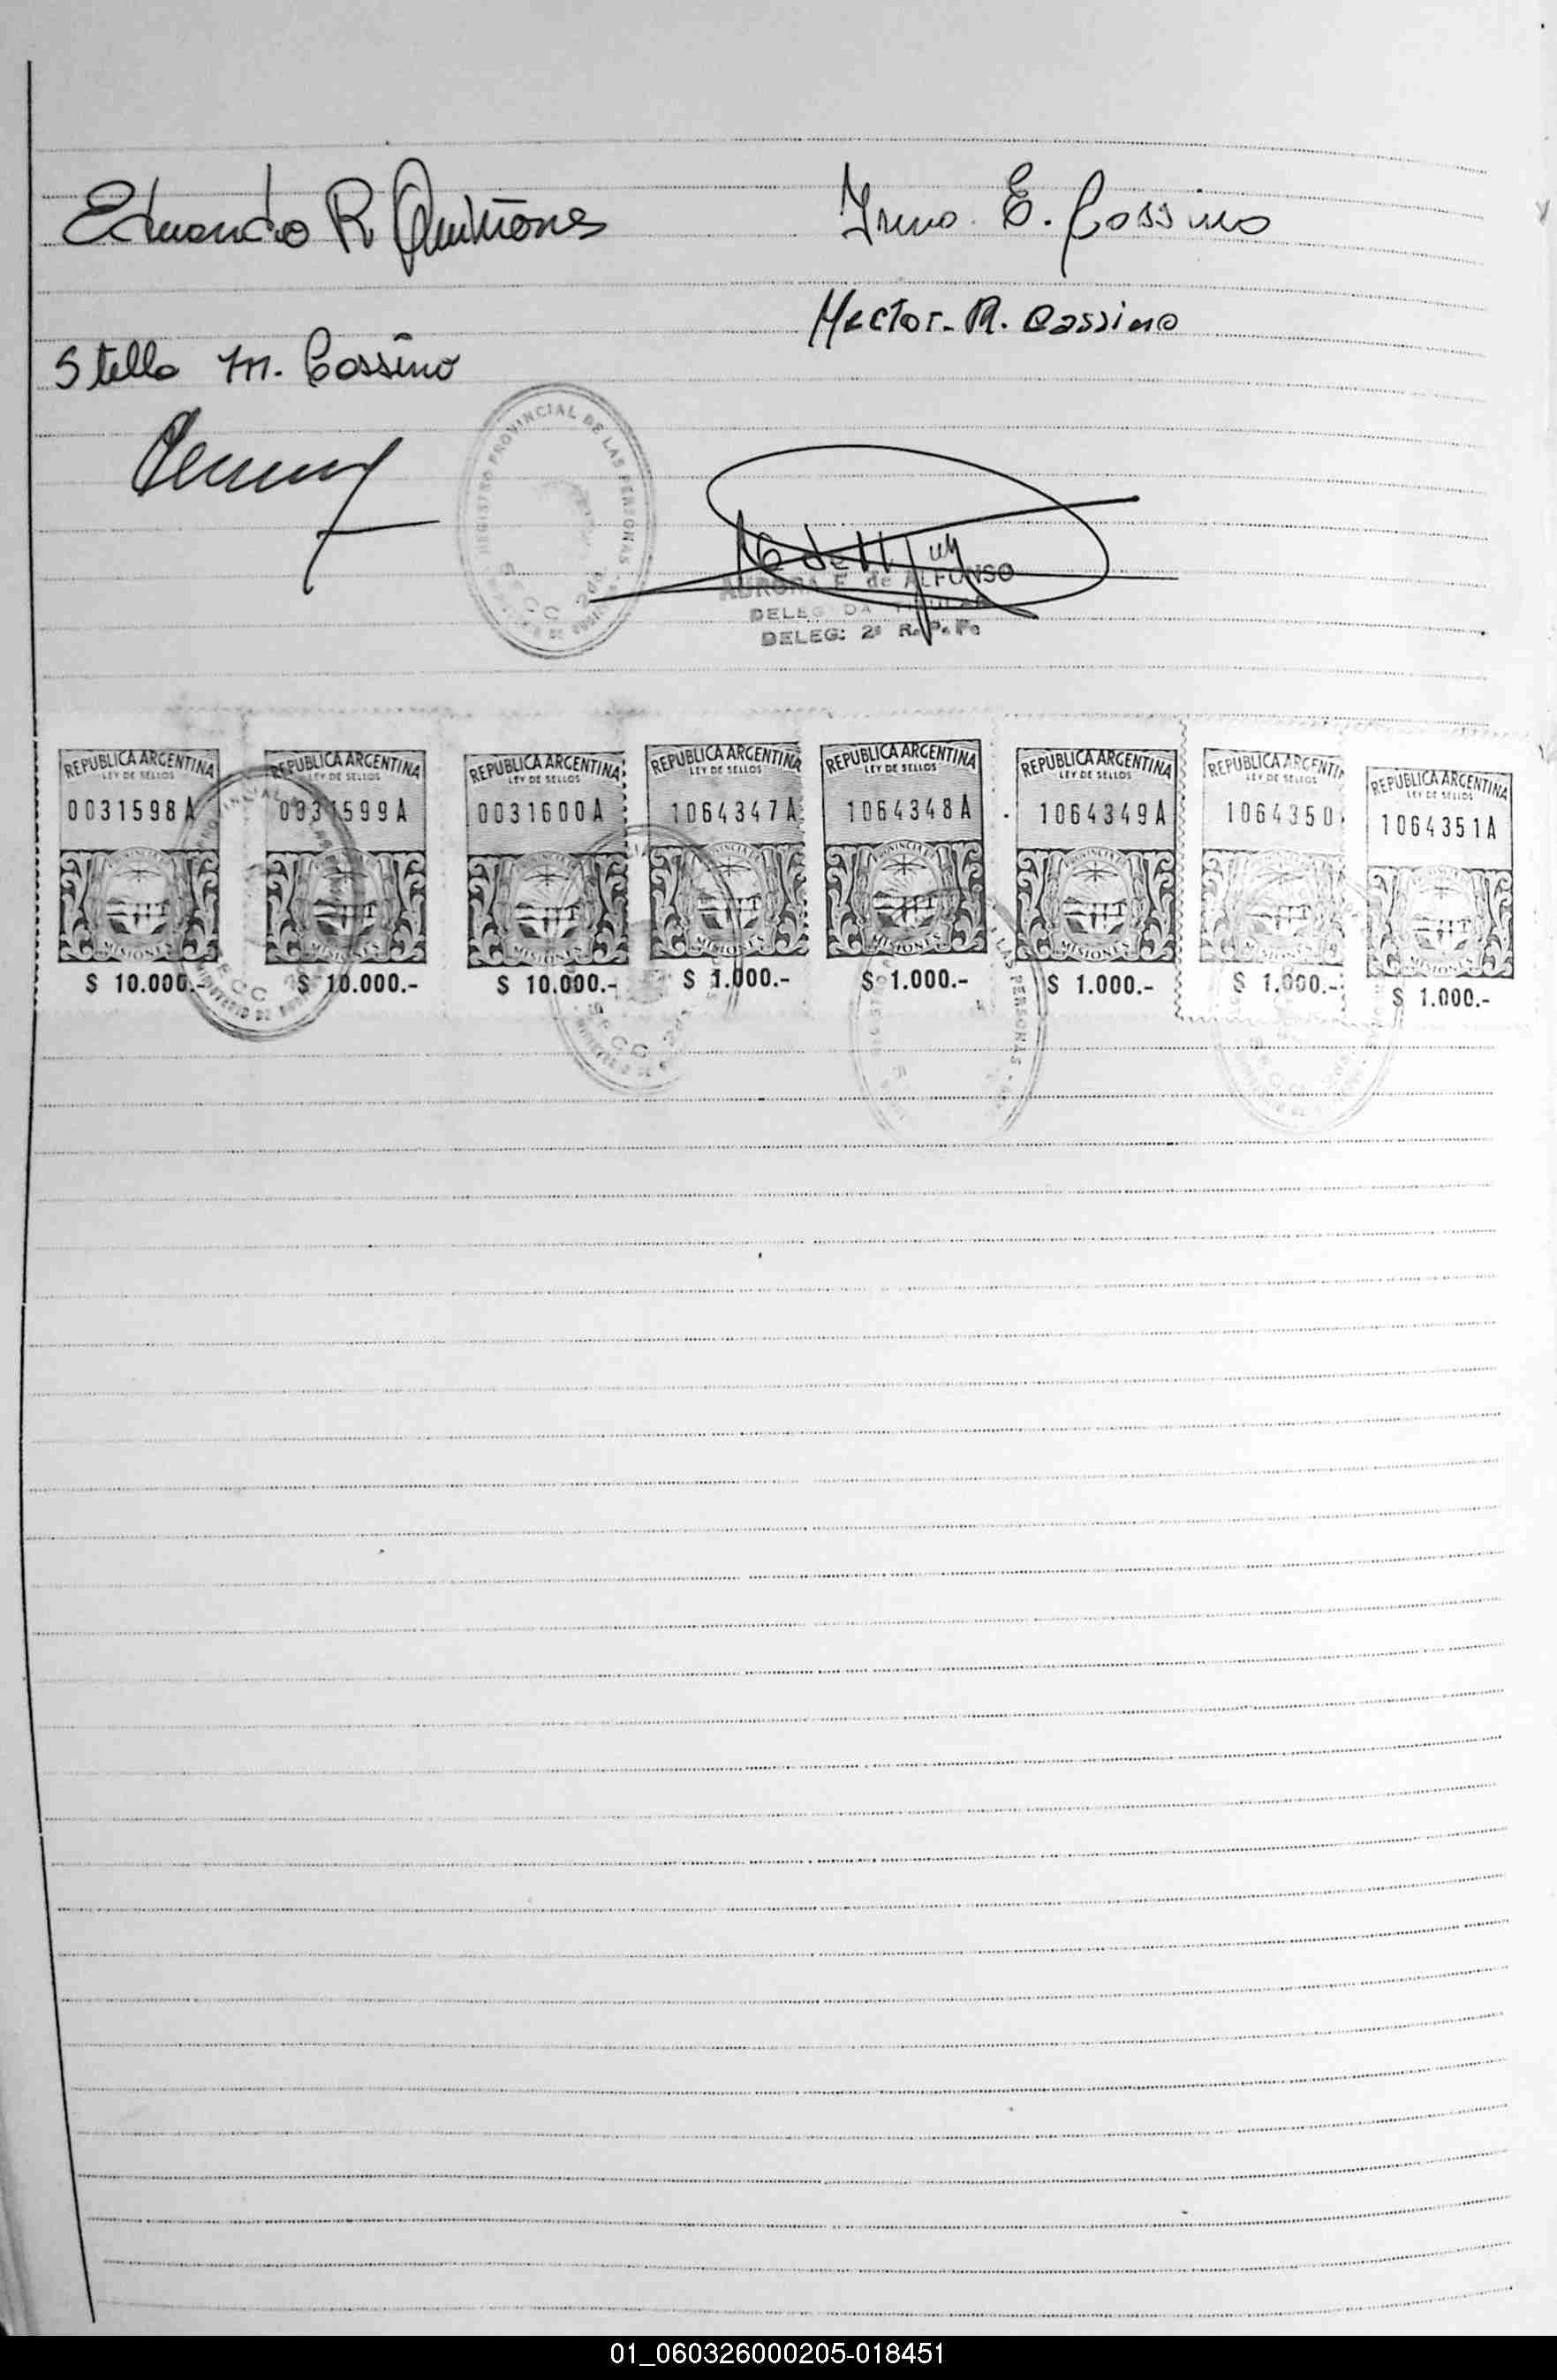 Eduardo R Quiñones
Irma E. Cassino
Hector R. Cassino
Stella M. Cassino
REGISTRO PROVINCIAL DE LAS PERSONAS
AURORA E. de ALFONSO
DELEGADA TITULAR
DELEG: 2ª R. P. Pe
REPUBLICA ARGENTINA REPUBLICA ARGENTINA REPUBLICA ARGENTINA REPUBLICA ARGENTINA REPUBLICA ARGENTINA REPUBLICA ARGENTINA REPUBLICA ARGENTINA REPUBLICA ARGENTINA
LEY DE SELLOS LEY DE SELLOS LEY DE SELLOS LEY DE SELLOS LEY DE SELLOS LEY DE SELLOS LEY DE SELLOS LEY DE SELLOS
0031598A 0031599A 0031600A 1064347A 1064348A 1064349A 1064350 1064351A
MISIONES MISIONES MISIONES MISIONES MISIONES MISIONES MISIONES MISIONES
$ 10.000.- $ 10.000.- $ 10.000.- $ 1.000.- $ 1.000.- $ 1.000.- $ 1.000.- $ 1.000.-
01_060326000205-018451